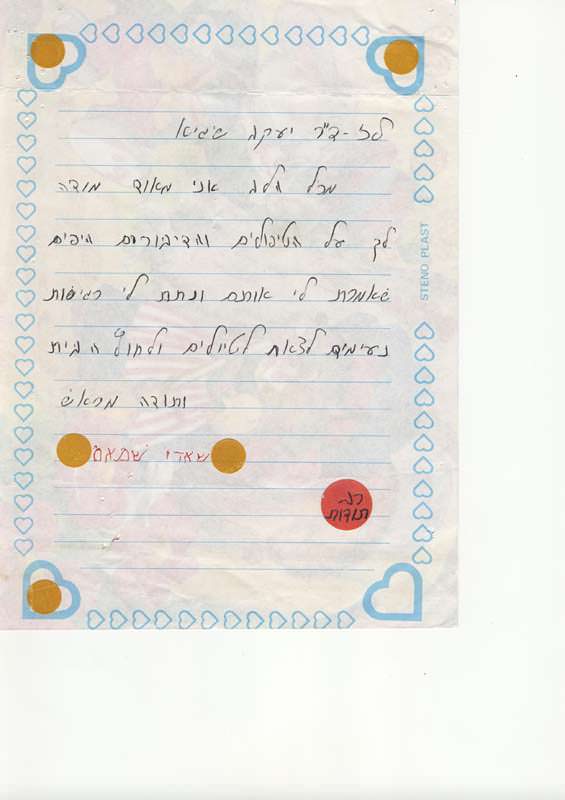 לד-ד"ר יעקב שגיא
מכל הלב אני מאוד מודה
לך על הטיפולים והדיבורים היפים
שאמרת לי אותם ונתת לי רגישות
נעימים לצאת לטיולים ולחוץ הבית
ותודה מראש
שאדי שתאם
רב
תודות
STENO PLAST